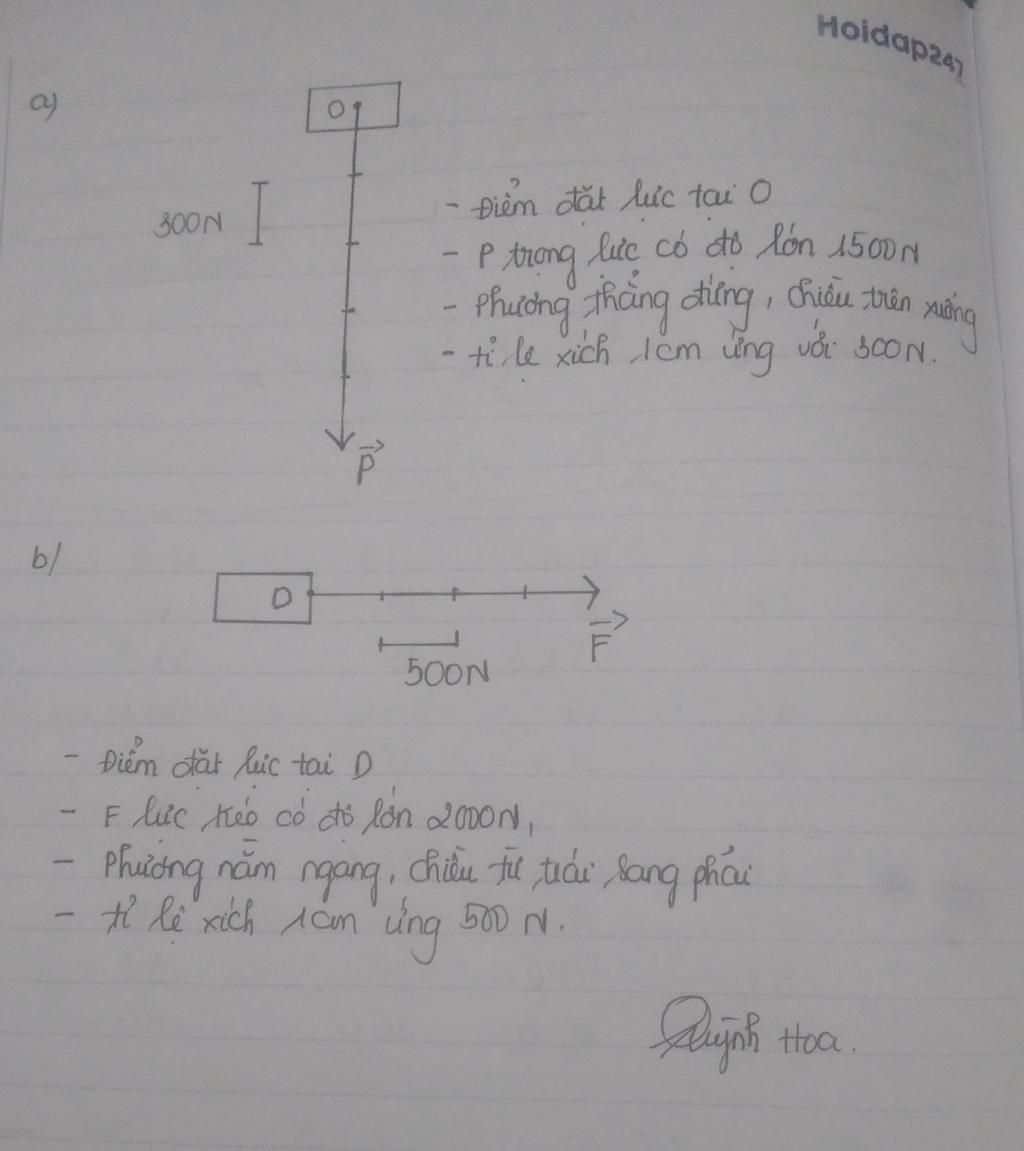 Hoidap247
a)
O
300N
- Điểm đặt lực tại O
- P trọng lực có độ lớn 1500N
- Phương thẳng đứng, chiều trên xuống
- tỉ lệ xích 1cm ứng với 300N.
P
b/
D
F
500N
- Điểm đặt lực tại D
- F lực kéo có độ lớn 2000N,
- Phương nằm ngang, chiều từ trái sang phải
- tỉ lệ xích 1cm ứng 500 N.
Quỳnh Hoa.